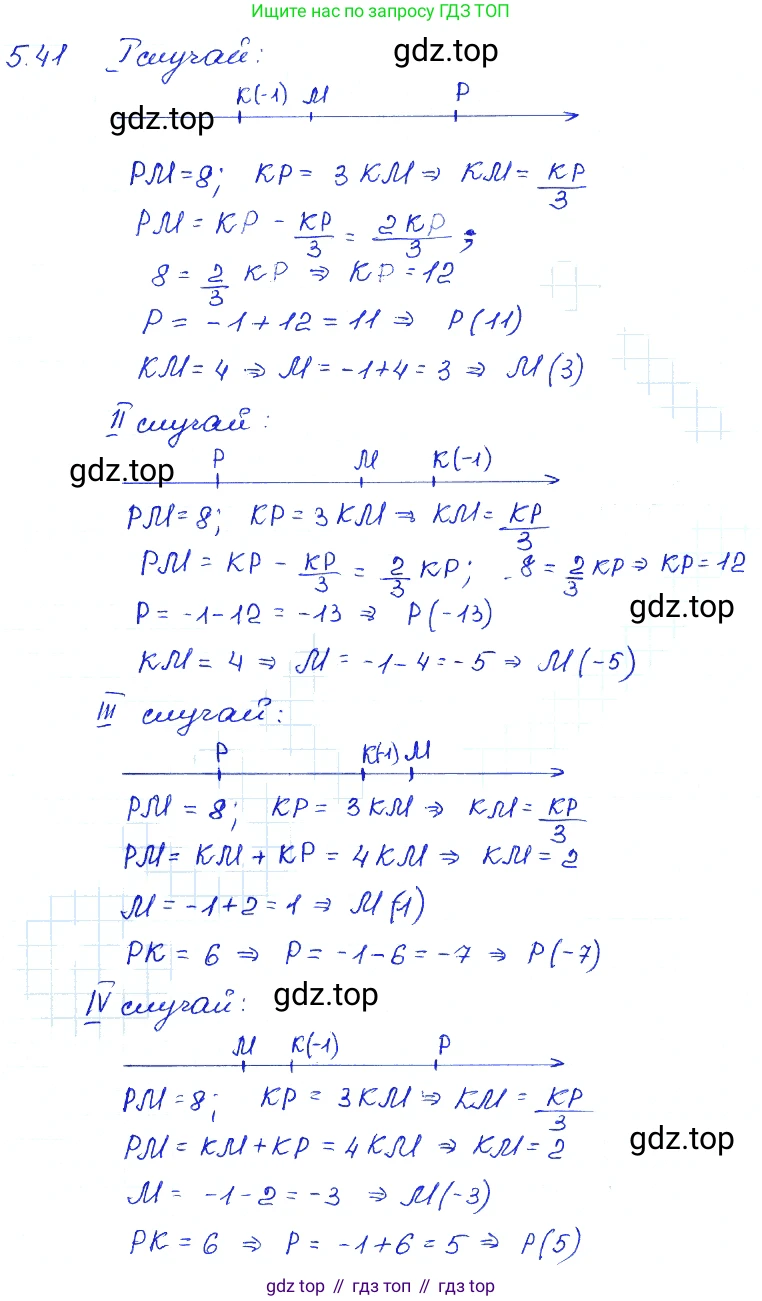 Ищите по запросу ГДЗ ТОП
5.41 I случай:
gdz.top
K(-1) M P
gdz.top
PM=8; KP = 3 KM ⇒ KM = KP/3
PM = KP - KP/3 = 2KP/3;
8 = 2/3 KP ⇒ KP = 12
P = -1+12 = 11 ⇒ P(11)
KM = 4 ⇒ M = -1+4 = 3 ⇒ M(3)
II случай:
gdz.top
P M K(-1)
PM=8; KP = 3KM ⇒ KM = KP/3
PM = KP - KP/3 = 2/3 KP; 8 = 2/3 KP ⇒ KP = 12
P = -1-12 = -13 ⇒ P(-13)
gdz.top
KM = 4 ⇒ M = -1-4 = -5 ⇒ M(-5)
III случай:
P K(-1) M
PM = 8; KP = 3KM ⇒ KM = KP/3
PM = KM + KP = 4KM ⇒ KM = 2
M = -1+2 = 1 ⇒ M(1)
PK = 6 ⇒ P = -1-6 = -7 ⇒ P(-7)
IV случай:
gdz.top
M K(-1) P
PM=8; KP = 3KM ⇒ KM = KP/3
PM = KM+KP = 4KM ⇒ KM = 2
gdz.top
M = -1-2 = -3 ⇒ M(-3)
PK = 6 ⇒ P = -1+6 = 5 ⇒ P(5)
gdz top // гдз топ // gdz top